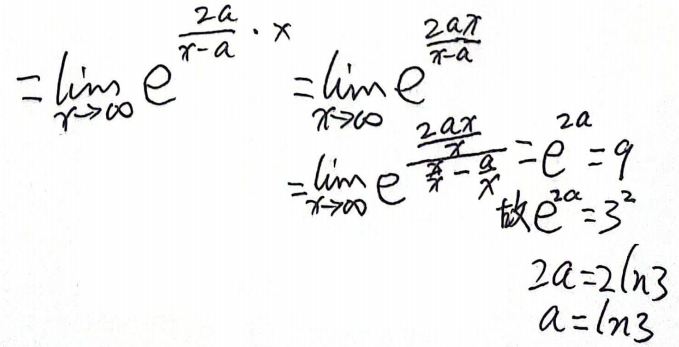 = lim_{x→∞} e^{\frac{2a}{x-a}·x} = lim_{x→∞} e^{\frac{2ax}{x-a}}
= lim_{x→∞} e^{\frac{\frac{2ax}{x}}{\frac{x}{x}-\frac{a}{x}}} = e^{2a} = 9
故 e^{2a} = 3^2
2a = 2ln3
a = ln3